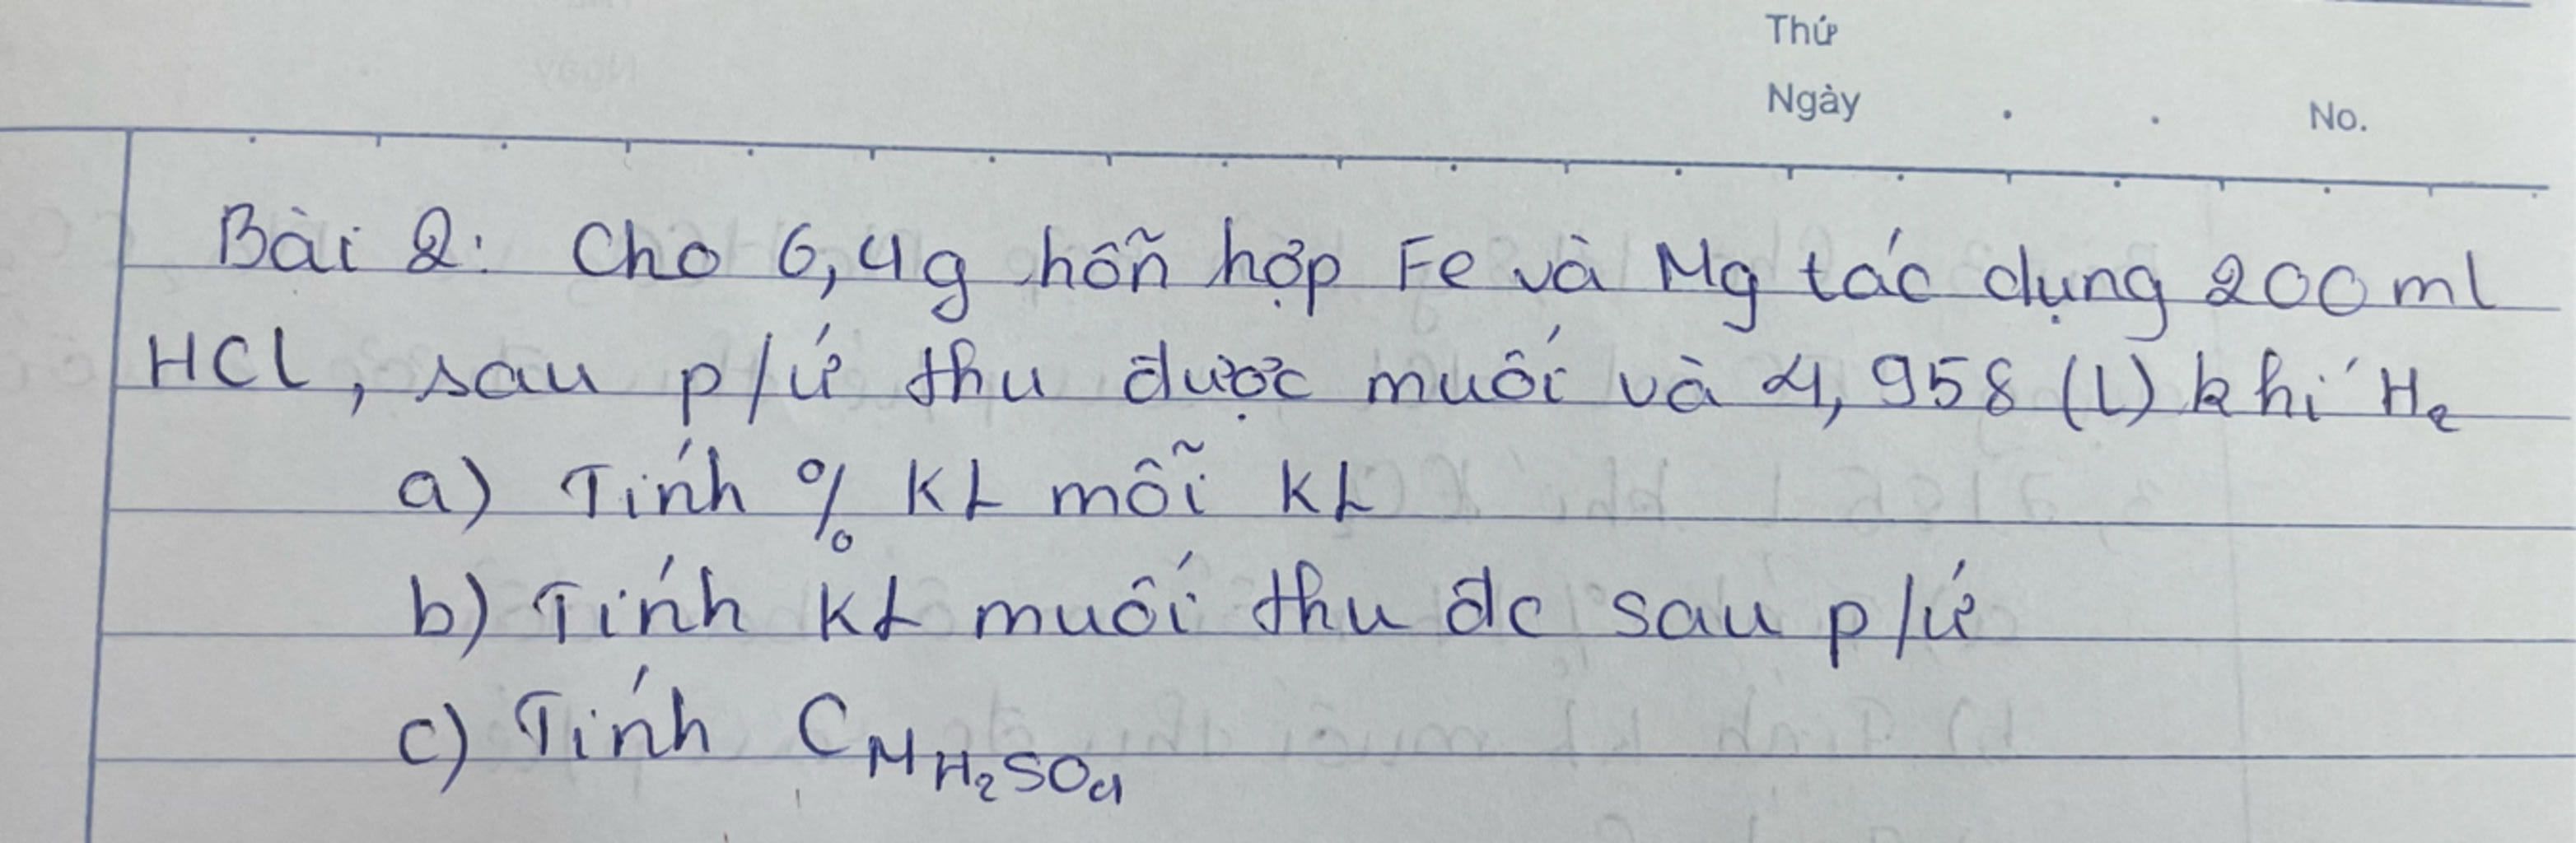 Thứ
Ngày . . No.
Bài 2: Cho 6,4g hỗn hợp Fe và Mg tác dụng 200ml
HCl, sau p/ứ thu được muối và 4,958 (l) khí H₂
a) Tính % KL mỗi KL
b) Tính KL muối thu đc sau p/ứ
c) Tính CM H₂SO₄